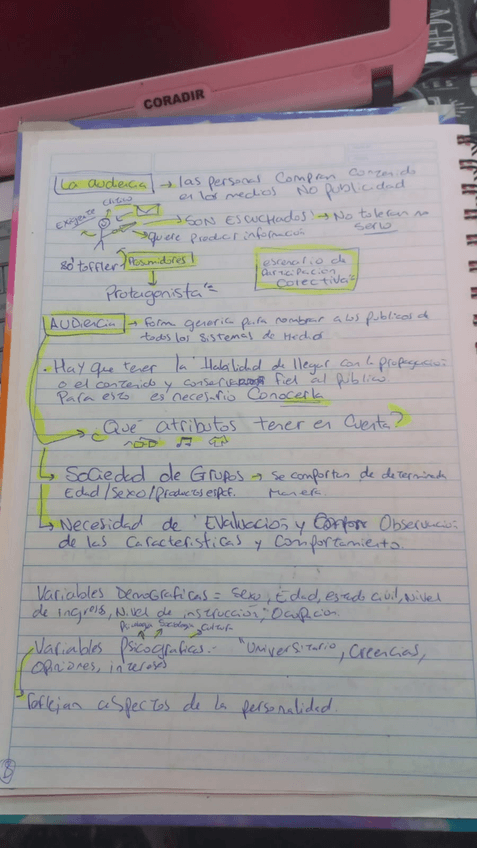 CORADIR
La audiencia → Las personas Compran Contenido
en los medios NO publicidad
critico
Exigente
→ SON ESCUCHADOS! → No toleran no
serlo
→ quiere producir información
80' toffler Prosumidores!
Protagonista
escenario de
Participación
Colectiva
AUDiencia → forma generica para nombrar a los publicos de
todos los Sistemas de Medios
Hay que tener la Habilidad de llegar con la
o el contenido y fiel al público
Para esto es necesario Conocerla
¿Qué atributos tener en Cuenta?
Sociedad de Grupos → se comportan de determinada
Edad/Sexo/Productos espcf. Manera
Necesidad de Evaluación y Observación
de las Caracteristicas y Comportamiento.
Variables Demograficas = Sexo, Edad, Estado Civil, Nivel
de ingreso, Nivel de instrucción, Ocupacion
Psicologia Sociologia Cultura
Variables Psicograficas: "Universitario, Creencias,
Opiniones, intereses
reflejan aspectos de la personalidad.
8